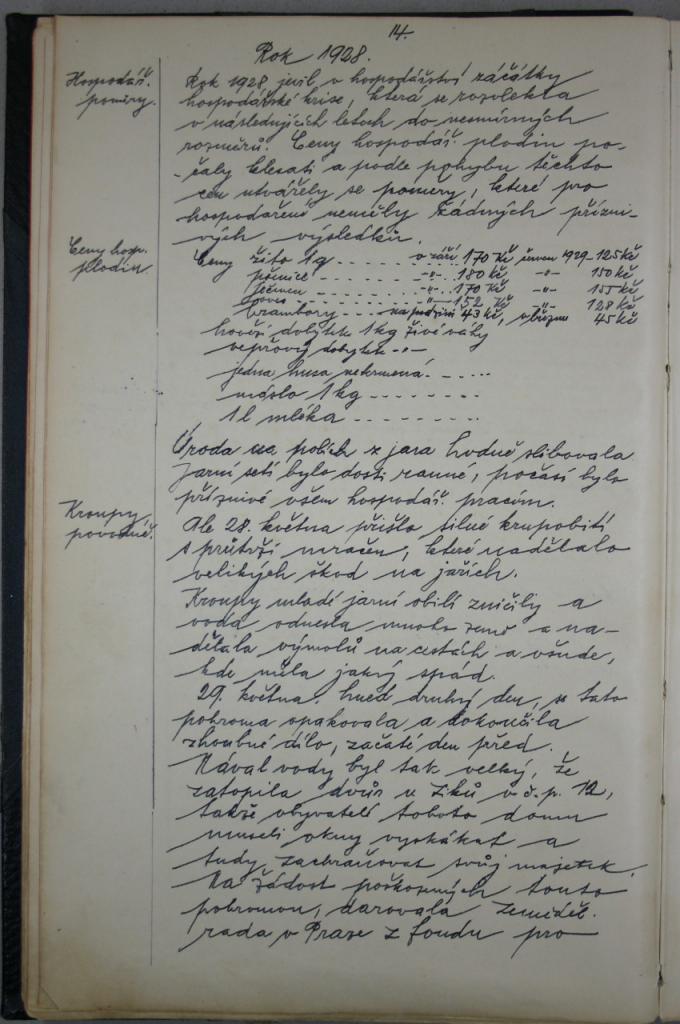 14.
Rok 1928.
Hospodář.
poměry.
Rok 1928 jevil v hospodářství záčátky
hospodářské krise, která se rozvlekla
v následujících letech do nesmírných
rozměrů. Ceny hospodář. plodin po-
čaly klesati a podle pohybu těchto
cen utvářely se poměry, které pro
hospodaření neměly žádných přízni-
vých výsledků.
Ceny hosp.
plodin.
Ceny žito 1q .... v září 170 Kč červen 1929 - 125 Kč
pšenice ........ -"- 180 Kč, -"- 150 Kč
ječmen ........ -"- 170 Kč -"- 155 Kč
oves ........ -"- 152 Kč -"- 128 Kč
brambory .... na podzim 43 Kč, v březnu 45 Kč
hovězí dobytek 1 kg živé váhy
vepřový dobytek -"-
jedna husa nekrmená. - ....
máslo 1 kg ........
1 l mléka ........
Úroda na polích z jara hodně slibovala
Jarní setí bylo dosti ranné, počasí bylo
příznivé všem hospodář. pracím.
Kroupy,
povodně.
Ale 28. května přišlo silné krupobití
s průtrží mračen, které nadělalo
velikých škod na jařích.
Kroupy mladé jarní obilí zničily a
voda odnesla mnoho země a na-
dělala výmolů na cestách a všude,
kde měla jaký spád.
29. května, hned druhý den, se tato
pohroma opakovala a dokončila
zhoubné dílo, začaté den před.
Nával vody byl tak velký, že
zatopila dvůr u Zíků v č.p. 12,
takže obyvatelé tohoto domu
museli okny vyskákat a
tudy zachraňovat svůj majetek.
Na žádost poškozených touto
pohromou, darovala Zeměděl.
rada v Praze z fondu pro